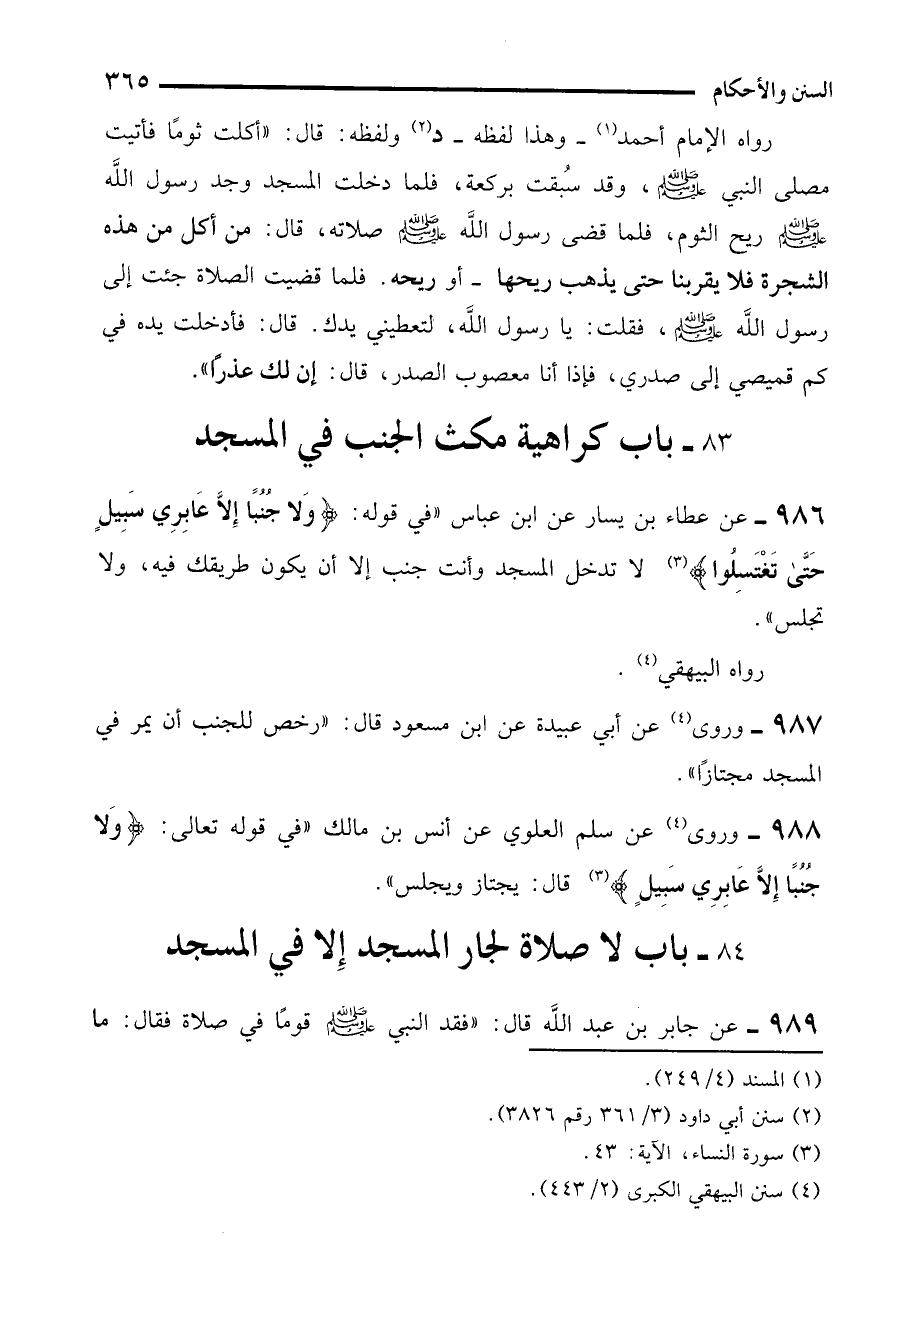 السنن والأحكام ٣٦٥
رواه الإمام أحمد(١) ـ وهذا لفظه ـ د(٢) ولفظه: قال: «أكلت ثومًا فأتيت
مصلى النبي ﷺ، وقد سُبقت بركعة، فلما دخلت المسجد وجد رسول اللَّه
ﷺ ريح الثوم، فلما قضى رسول اللَّه ﷺ صلاته، قال: من أكل من هذه
الشجرة فلا يقربنا حتى يذهب ريحها ـ أو ريحه. فلما قضيت الصلاة جئت إلى
رسول اللَّه ﷺ، فقلت: يا رسول اللَّه، لتعطيني يدك. قال: فأدخلت يده في
كم قميصي إلى صدري، فإذا أنا معصوب الصدر، قال: إن لك عذرًا».
٨٣ ـ باب كراهية مكث الجنب في المسجد
٩٨٦ ـ عن عطاء بن يسار عن ابن عباس «في قوله: ﴿وَلا جُنُبًا إلاَّ عَابِرِي سَبِيلٍ
حَتَّىٰ تَغْتَسِلُوا﴾(٣) لا تدخل المسجد وأنت جنب إلا أن يكون طريقك فيه، ولا
تجلس».
رواه البيهقي(٤).
٩٨٧ ـ وروى(٤) عن أبي عبيدة عن ابن مسعود قال: «رخص للجنب أن يمر في
المسجد مجتازًا».
٩٨٨ ـ وروى(٤) عن سلم العلوي عن أنس بن مالك «في قوله تعالى: ﴿وَلا
جُنُبًا إِلاَّ عَابِرِي سَبِيلٍ﴾(٣) قال: يجتاز ويجلس».
٨٤ ـ باب لا صلاة لجار المسجد إلا في المسجد
٩٨٩ ـ عن جابر بن عبد اللَّه قال: «فقد النبي ﷺ قومًا في صلاة فقال: ما
(١) المسند (٤/ ٢٤٩).
(٢) سنن أبي داود (٣/ ٣٦١ رقم ٣٨٢٦).
(٣) سورة النساء، الآية: ٤٣.
(٤) سنن البيهقي الكبرى (٢/ ٤٤٣).